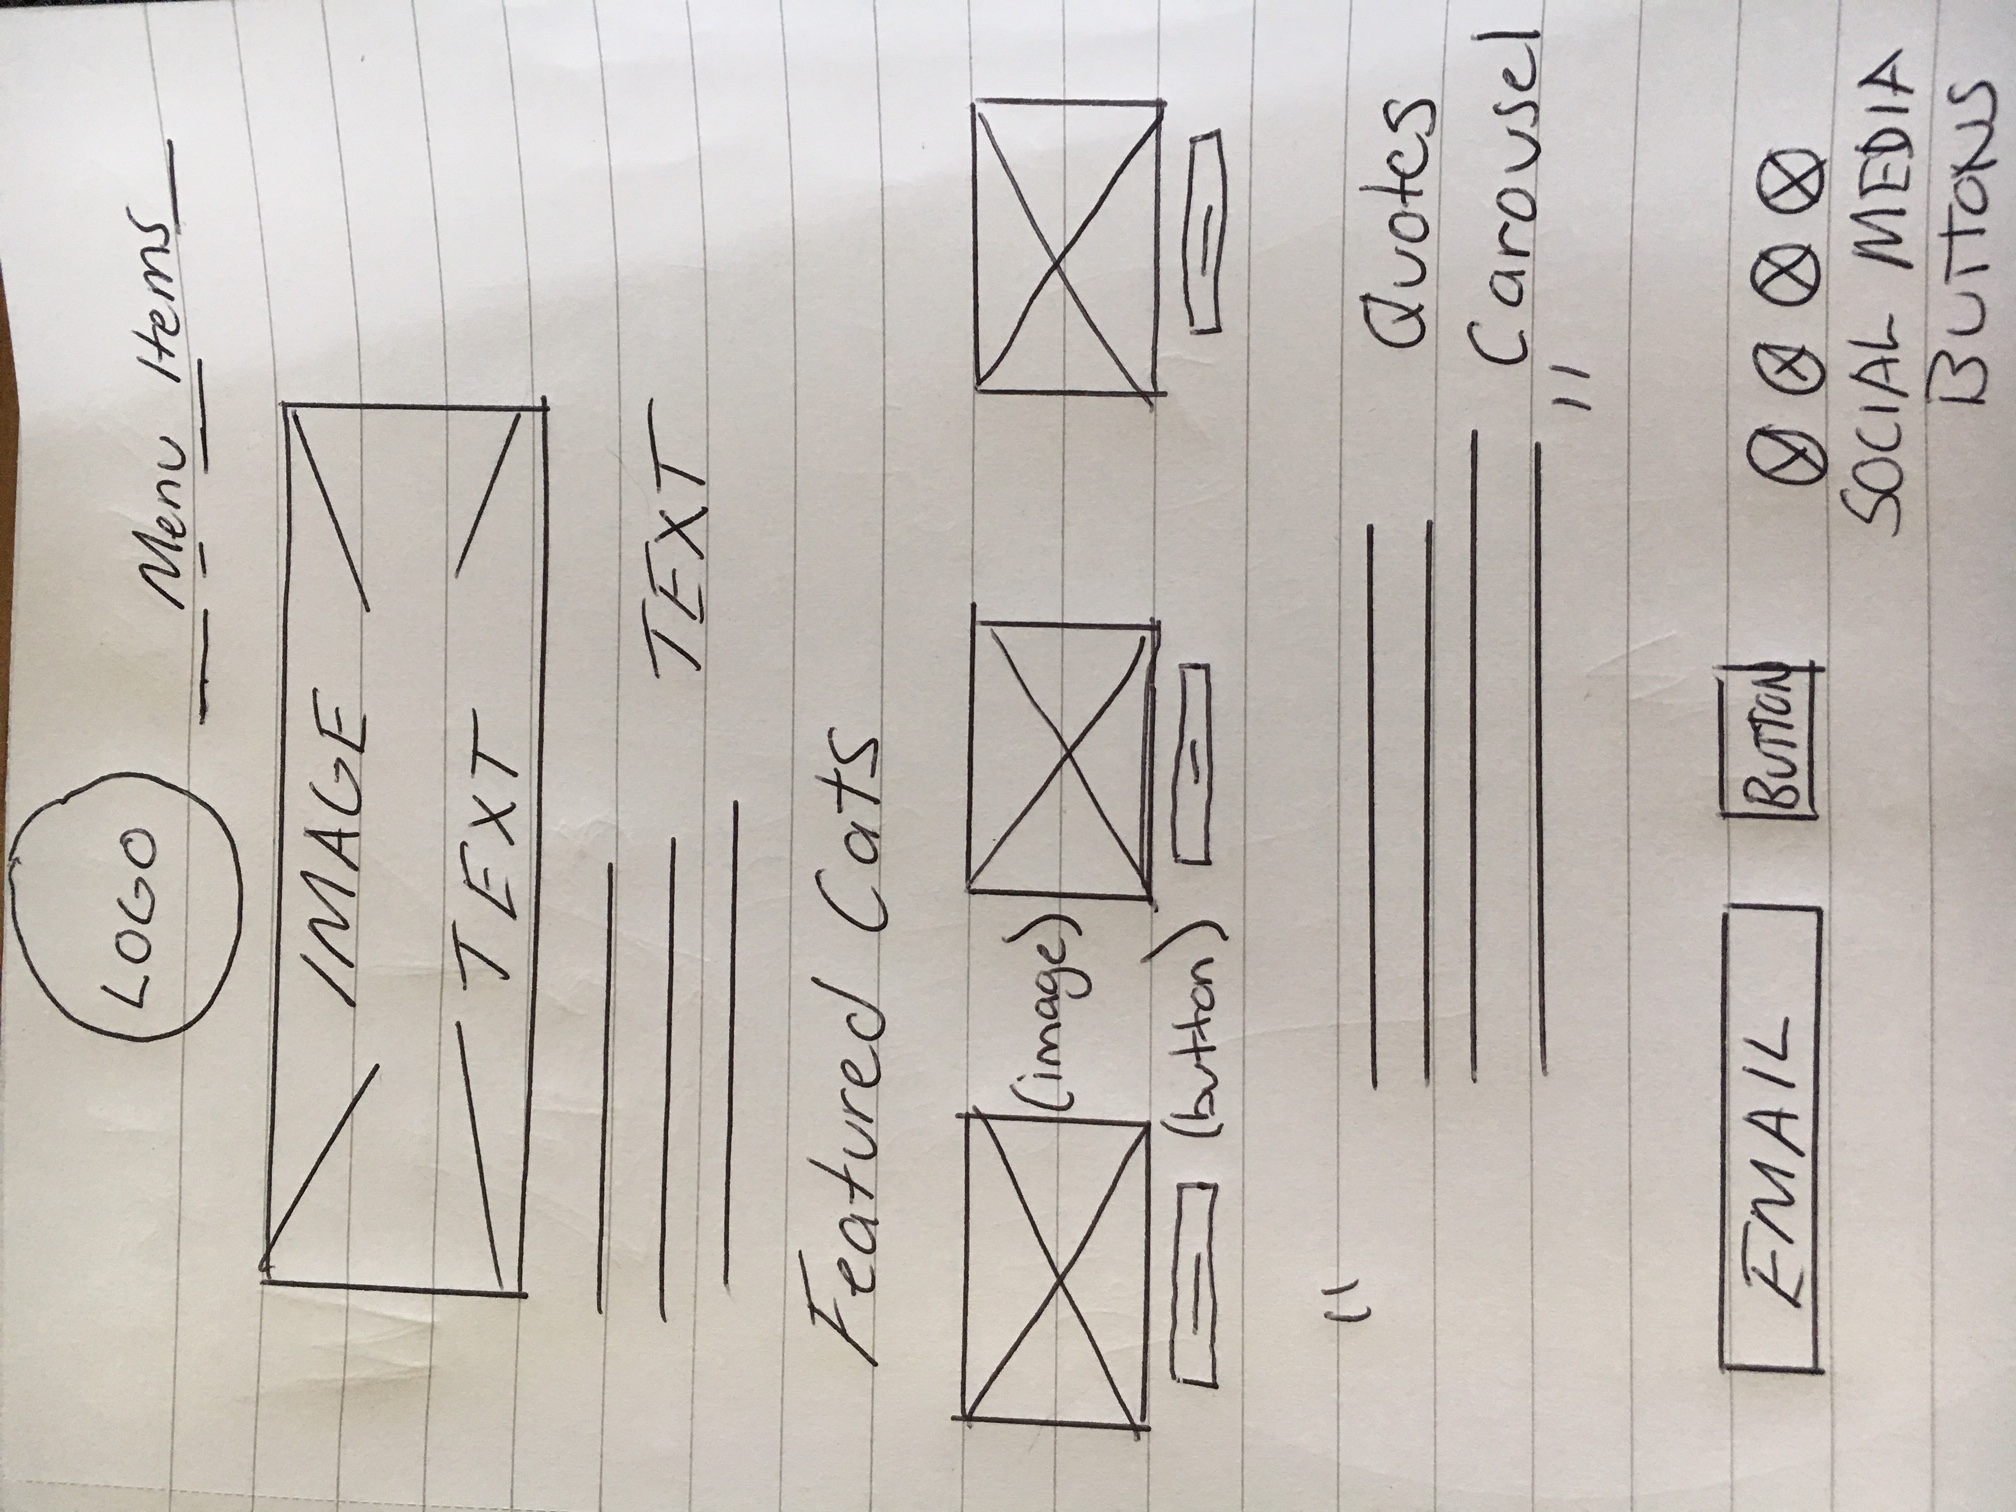 LOGO
Menu Items
IMAGE
TEXT
TEXT
Featured Cats
(image)
(button)
"
Quotes
Carousel
"
EMAIL
BUTTON
SOCIAL MEDIA
BUTTONS